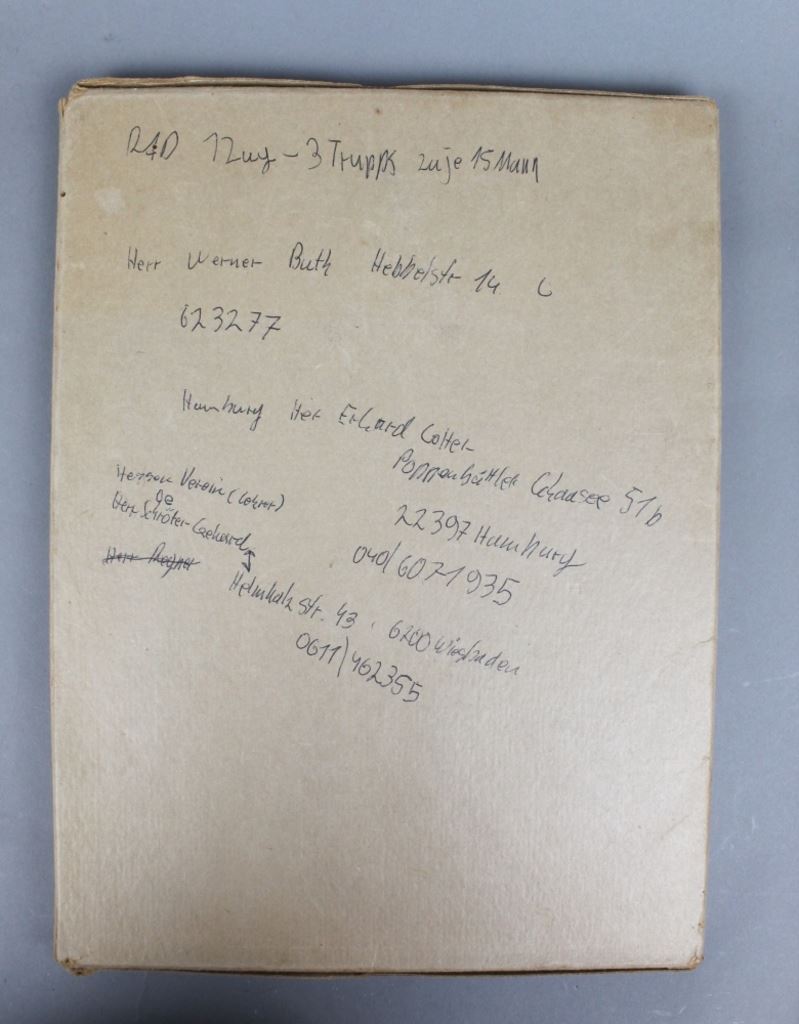 RAD 1 Zug - 3 Trupps zu je 15 Mann
Herr Werner Buth Hebbelstr 14
623277
Hamburg Her Erhard
Poppenbüttler Chaussee 51b
22397 Hamburg
040/6071935
Hessen Verein (Lehrer)
Herr Schröter
Helmholzstr. 43, 6200 Wiesbaden
0611/462355